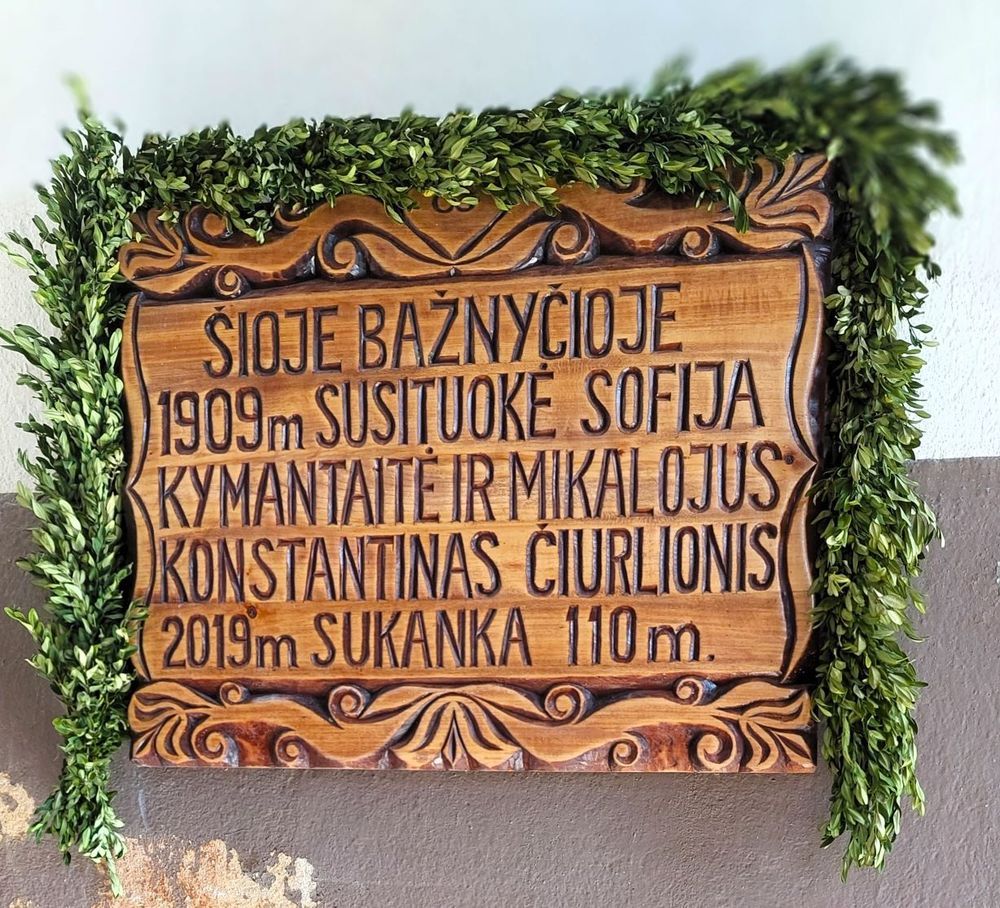 ŠIOJE BAŽNYČIOJE
1909m SUSITUOKĖ SOFIJA
KYMANTAITĖ IR MIKALOJUS
KONSTANTINAS ČIURLIONIS
2019m SUKANKA 110 m.